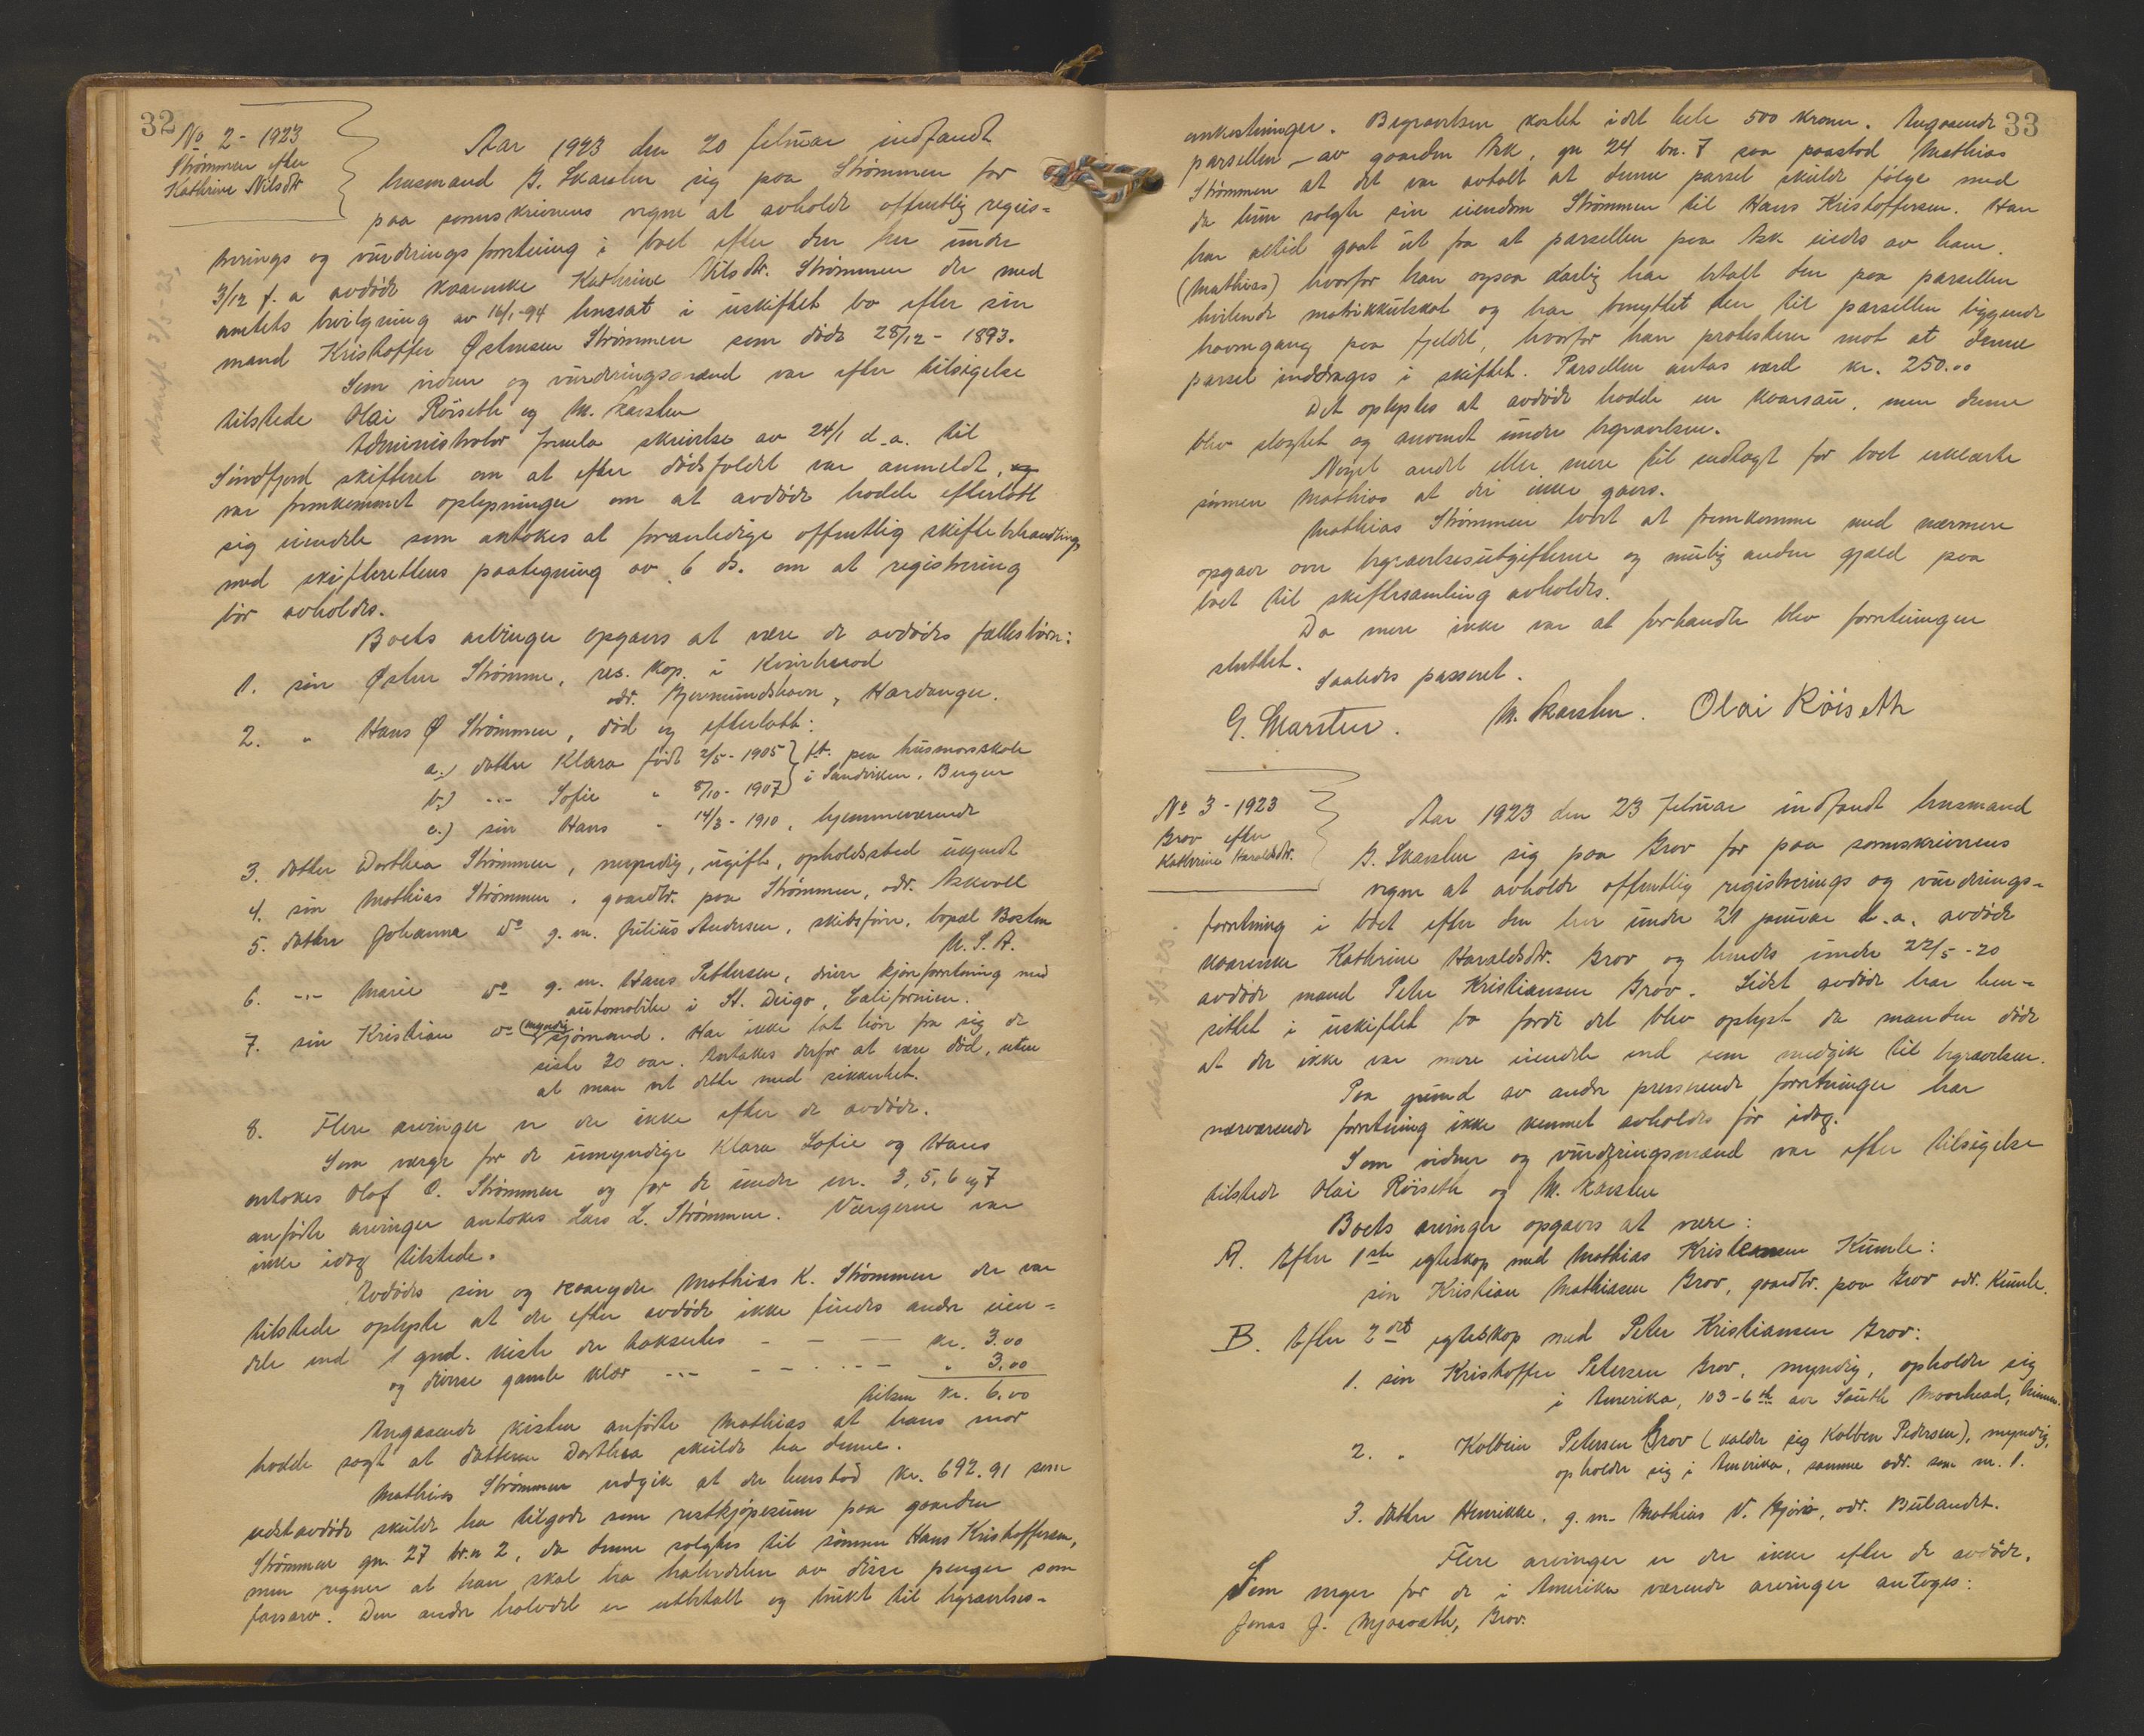 32
No 2 - 1923
Strømmen efter
Kathrine Nilsdtr
Aar 1923 den 20 februar indfandt
lensmand G. Skarsten sig paa Strømmen for
paa sorenskriverens vegne at avholde offentlig regis-
trerings og vurderingsforretning i boet efter den her under
3/12 f. a avdøde kaarenke Kathrine Nilsdtr. Strømmen der med
amtets bevilgning av 16/1-94 hensat i uskiftet bo efter sin
mand Kristoffer Østensen Strømmen som døde 28/12 - 1893.
Som vidner og vurderingsmænd var efter tilsigelse
tilstede Olai Röiseth og M. Karsten
Administrator fremla skrivelse av 24/1 d.a. til
Sundfjord skifteret om at efter dødsfaldet var anmeldt,
var fremkommet oplysninger om at avdøde hadde efterlatt
sig eiendele som antokes at foranledige offentlig skiftebehandling
med skifterettens paategning av 6 ds. om at registrering
bør avholdes.
Boets arvinger opgaves at være de avdødes fællesbørn:
1. søn Østen Strømme, res. kap. i Kvinherad
adr. Gjermundshavn, Hardanger.
2. " Hans Ø Strømmen, død og efterlatt:
a.) datter Klara født 2/5 - 1905 } f.t. paa husmorskole
b.) --- Sofie " 8/10 - 1907 } i Sandviken, Bergen
c.) søn Hans " 14/3 - 1910, hjemmeværende
3. datter Dorthea Strømmen, myndig, ugift, opholdssted ukjendt
4. søn Mathias Strømmen, gaardbr. paa Strømmen, adr. Askvoll
5. datter Johanna do g. m. Julius Andersen, skibsfører, bopæl Boston
U. S. A.
6. -"- Marie do g. m. Hans Pettersen, driver kjøreforretning med
automobiler i St. Diego, Californien.
7. søn Kristian do (myndig) sjømand. Har ikke lat høre fra sig de
siste 20 aar. Antakes derfor at være død, uten
at man vet dette med sikkerhet.
8. Flere arvinger er der ikke efter de avdøde.
Som verge for de umyndige Klara Sofie og Hans
antokes Olof O. Strømmen og for de under nr. 3, 5, 6 og 7
anførte arvinger antokes Lars L. Strømmen. Vergerne var
ikke idag tilstede.
Avdødes søn og kaaryder Mathias K. Strømmen der var
tilstede oplyste at der efter avdøde ikke findes andre eien-
dele end 1 gml. kiste der taksertes - - - kr. 3.00
og diverse gamle klær --- - - - - " 3.00
tilsam kr. 6.00
Angaaende kisten anførte Mathias at hans mor
hadde sagt at datteren Dorthea skulde ha denne.
Mathias Strømmen vedgik at der henstod kr. 692.91 som
avdøde skulde ha tilgode som restkjøpesum paa gaarden
Strømmen gn. 27 br.n 2, da denne solgtes til sønnen Hans Kristoffersen,
men regner at han skal ha halvdelen av disse penger som
farsarv. Den andre halvdel er utbetalt og brukt til begravelses-
utskrift 3/3 23.
33
omkostninger. Begravelsen kostet i det hele 500 kroner. Angaaende
parsellen - av gaarden Ask, gn 24 bn. 7 saa paastod Mathias
Strømmen at det var avtalt at denne parsel skulde følge med
da hun solgte sin eiendom Strømmen til Hans Kristoffersen. Han
har altid gaat ut fra at parsellen paa Ask eiedes av ham
(Mathias) hvorfor han ogsaa aarlig har betalt den paa parsellen
hvilende matrikkulskat og har benyttet den til parsellen liggende
havnegang paa fjeldet, hvorfor han protesterer mot at denne
parsel inddrages i skiftet. Parsellen antas værd kr. 250.00
Det oplystes at avdøde hadde en kvarsau, men denne
blev slagtet og anvendt under begravelsen.
Noget andet eller mere til indtægt for boet erklærte
sønnen Mathias at der ikke gaves.
Mathias Strømmen lovet at fremkomme med nærmere
opgave over begravelsesutgifterne og mulig anden gjæld paa
boet til skiftesamling avholdes.
Da mere ikke var at forhandle blev forretningen
sluttet.
Saaledes passeret.
G. Skarsten. M. Karsten. Olai Röiseth
No 3 - 1923
Grov efter
Kathrine Haraldsdtr.
Aar 1923 den 23 februar indfandt lensmand
G. Skarsten sig paa Grov for paa sorenskriverens
vegne at avholde offentlig registrerings og vurderings-
forretning i boet efter den her under 21 januar d.a. avdøde
kaarenke Kathrine Haraldsdtr. Grov og hendes under 22/5 -20
avdøde mand Peter Kristiansen Grov. Sidst avdøde har hen-
sittet i uskiftet bo fordi det blev oplyst da manden døde
at der ikke var mere eiendele end som medgik til begravelsen.
Paa grund av andre presserende forretninger har
nærværende forretning ikke kunnet avholdes før idag.
Som vidner og vurderingsmænd var efter tilsigelse
tilstede Olai Röiseth og M. Karsten
Boets arvinger opgaves at være:
A. Efter 1ste egteskap med Mathias Kristensen Kumle:
søn Kristian Mathiasen Grov, gaardbr. paa Grov adr. Kumle.
B. Efter 2det egteskap med Peter Kristiansen Grov:
1. søn Kristoffer Petersen Grov, myndig, opholder sig
i Amerika, 103 - 6th ave South Moorhead, Minnes.
2. " Kolbein Petersen Grov (kalder sig Kolben Pedersen), myndig,
opholder sig i Amerika, samme adr. som nr. 1.
3. datter Henrikke, g. m. Mathias V. , adr. Bulandet.
Flere arvinger er der ikke efter de avdøde.
Som verger for de i Amerika værende arvinger antoges:
Jonas J. , Grov.
utskrift 3/3-23.